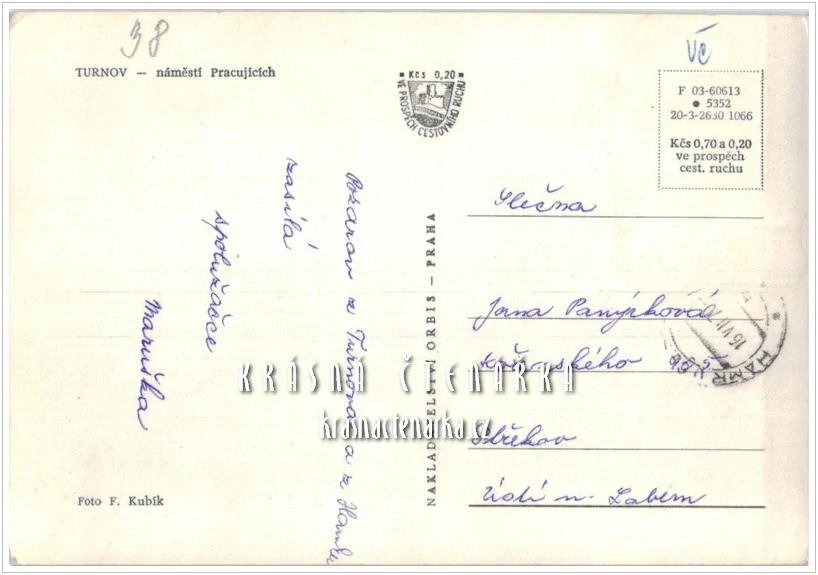 38
Vč
TURNOV — náměstí Pracujících
Kčs 0,20
VE PROSPĚCH CESTOVNÍHO RUCHU
F 03-60613
● 5352
20-3-2630 1066
Kčs 0,70 a 0,20
ve prospěch
cest. ruchu
Pozdrav z Turnova a z Hamru
zasílá
spolužačce
Maruška
NAKLADATELSTVÍ ORBIS — PRAHA
Slečna
Jana Panýrková
Střekov
Ústí n. Labem
16 VII
HAMR
KRÁSNÁ ČTENÁRKA
krasnactenarka.cz
Foto F. Kubík